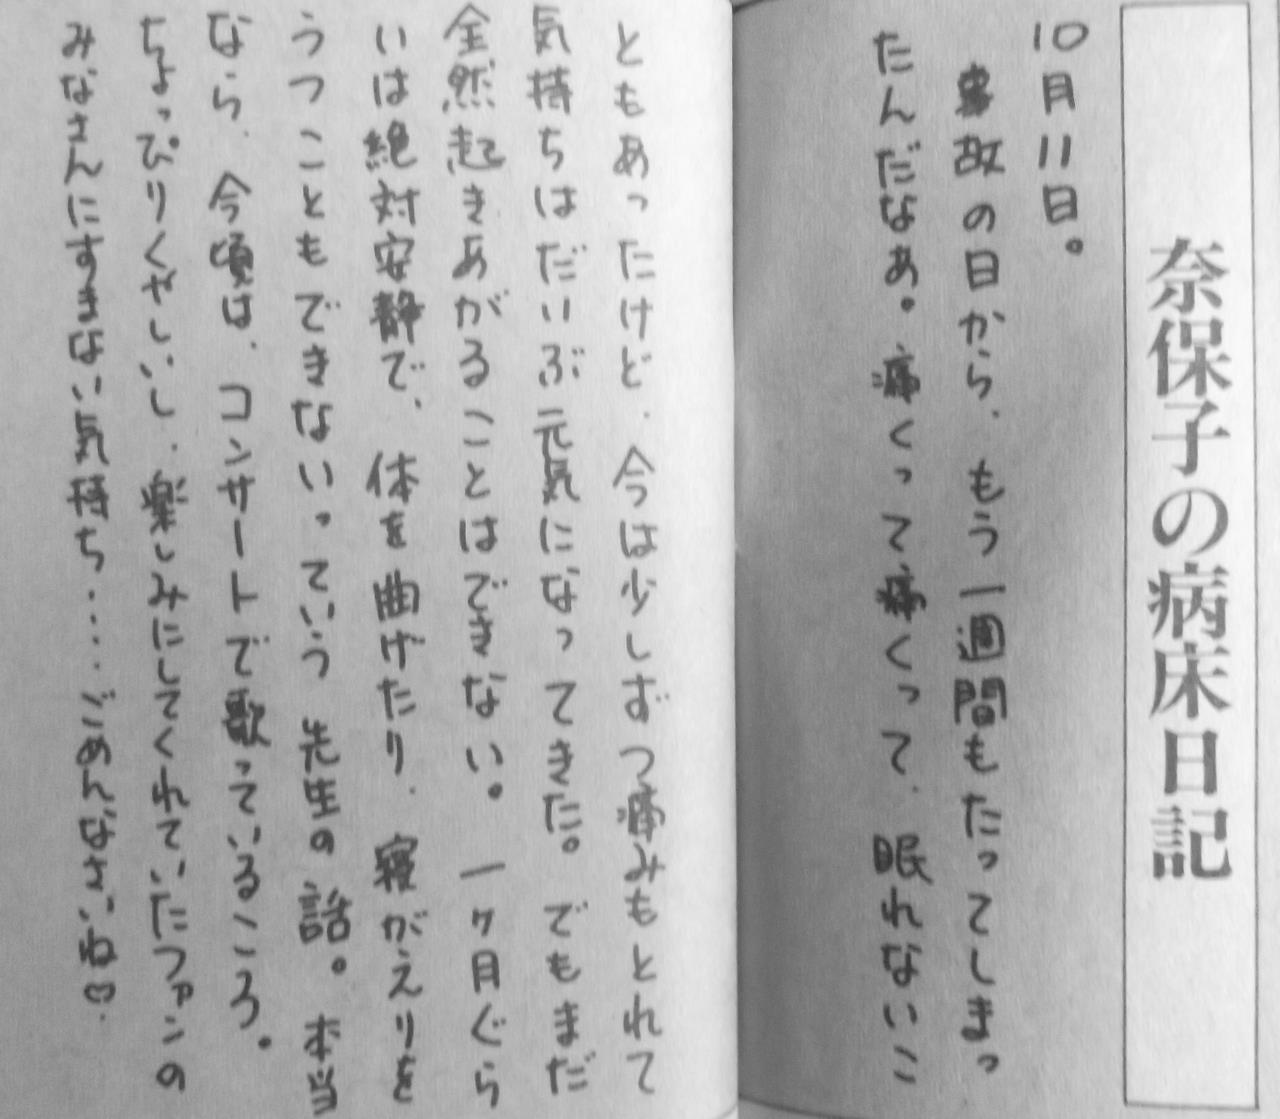 奈保子の病床日記
10月11日。
事故の日から、もう一週間もたってしまっ
たんだなぁ。痛くって痛くって、眠れないこ
ともあったけど、今は少しずつ痛みもとれて
気持ちはだいぶ元気になってきた。でもまだ
全然起きあがることはできない。一ヶ月ぐら
いは絶対安静で、体を曲げたり、寝がえりを
うつこともできないっていう先生の話。本当
なら、今頃は、コンサートで歌っているころ。
ちょっぴりくやしいし、楽しみにしてくれていたファンの
みなさんにすまない気持ち……ごめんなさいね♡。